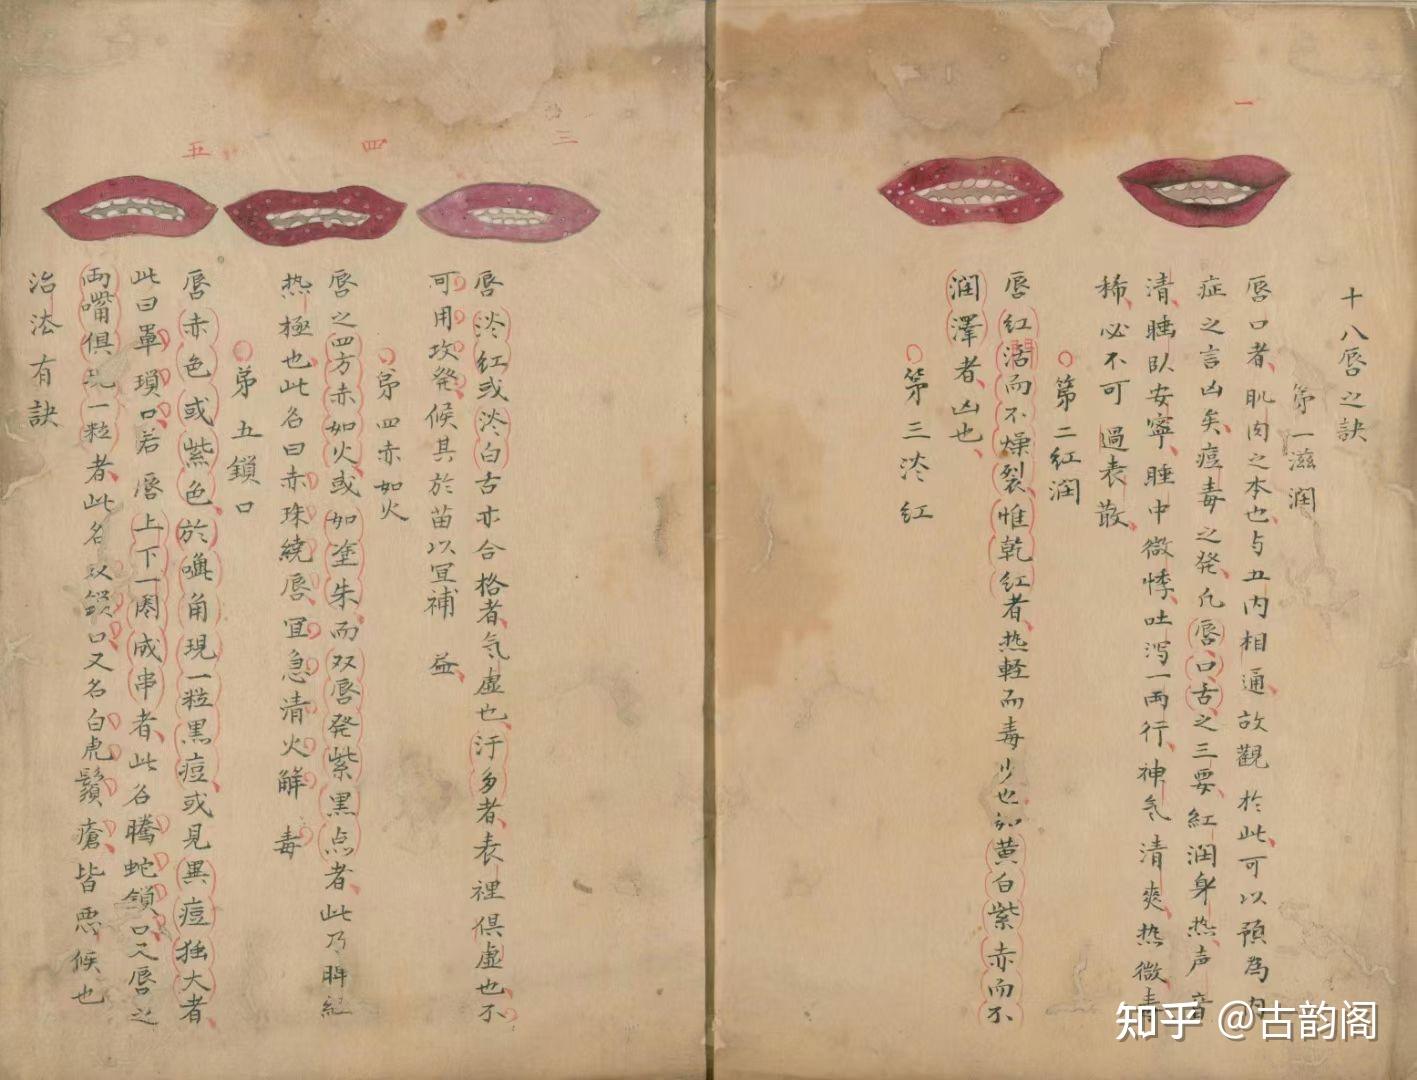 一
二
十八唇之訣
第一滋润
唇口者肌肉之本也与五内相通故觀於此可以預為内
症之言凶矣痘毒之発凡唇口舌之三要紅润身热声音
清睡卧安寧睡中微悸吐泻一両行神气清爽热微毒
稀必不可過表散
第二红润
唇红活而不燥裂惟乾红者热軽而毒少也如黄白紫赤而不
润澤者凶也
第三淡红
三
四
五
唇淡红或淡白古亦合格者気虚也汙多者表裡俱虚也不
可用攻発候其於苗以宜補益
第四赤如火
唇之四方赤如火或如塗朱而双唇発紫黒点者此乃脾
热極也此名曰赤珠繞唇宜急清火觧毒
第五鎖口
唇赤色或紫色於嘴角現一粒黒痘或見異痘独大者
此曰單瑣口若唇上下一圈成串者此名騰蛇鎖口又唇之
両嘴俱現一粒者此名双鎖口又名白虎鬚瘡皆悪候也
治法有訣
知乎 @古韵阁